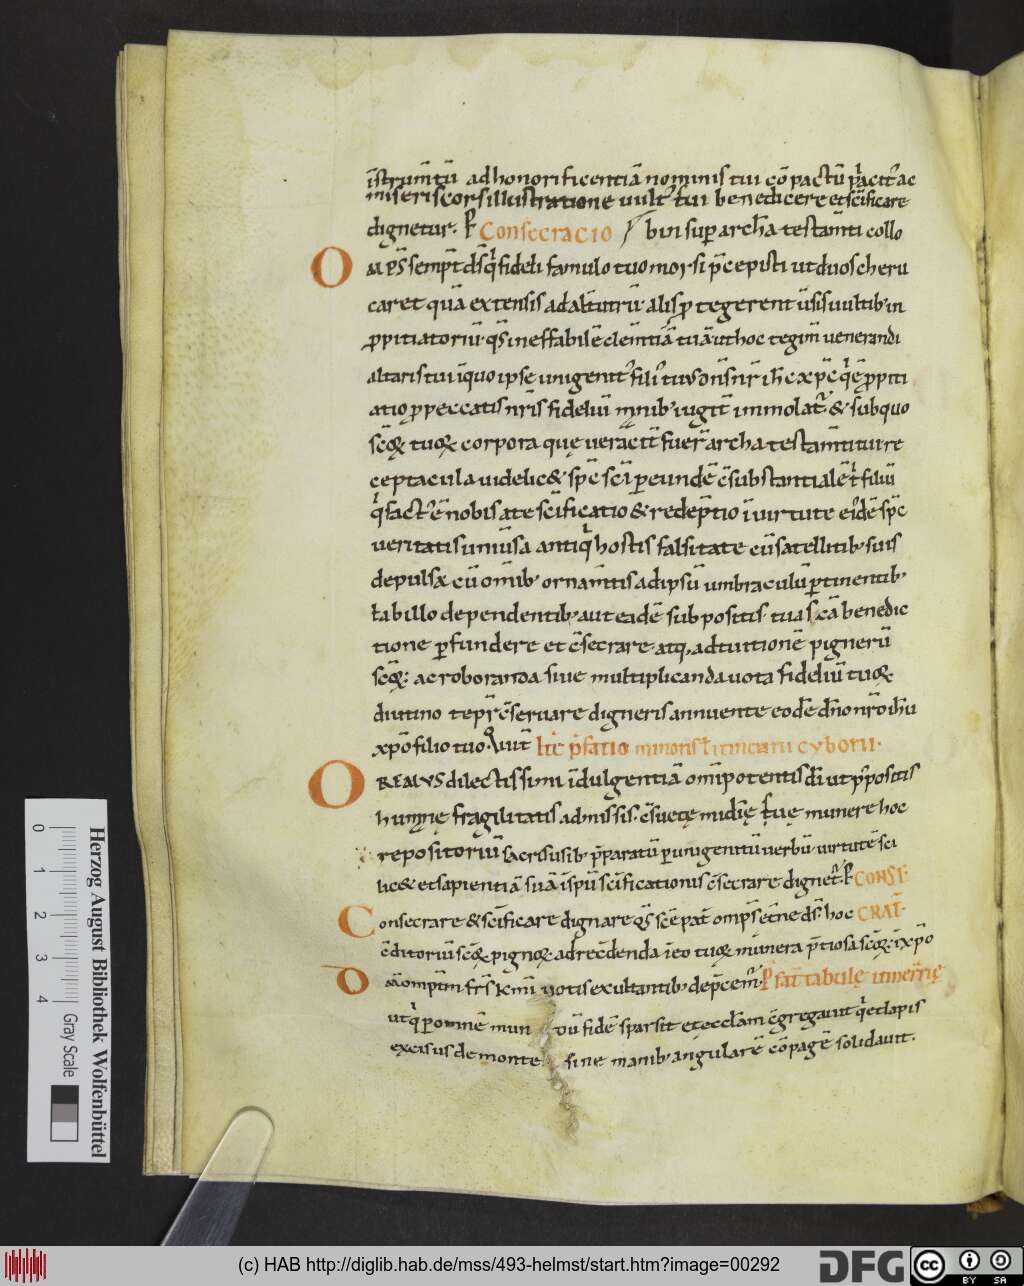 īstrum̄tū ad honorificentiā nominis tui cōpactū p̄acit᷑ ac
misericors illustratione uult᷑ tui benedicere et scīficare
dignetur. P̄ Consecracio bin sup archā testam̄ti collo
OM̄PS sēmpt̄ dsq̄ fideli famulo tuo moysi p̄cepisti ut duos cheru
caret quā extensis ad alt̄utrū alis p̄tegerent ūsis uultib· in
ꝓpitiatoriū· qs̄ ineffabilē clem̄tiā tuā ut hoc tegim̄ uenerandi
altaris tui ī quo ipse unigenit᷑ fili᷑ tuus dn̄s nr̄ ih̄c xp̄c q̄ ē ꝓpiti
atio ꝓ peccatis nr̄is fideliū man̄ib· iugit̄ immolat᷑ &· sub quo
sc̄oꝝ tuoꝝ corpora quę ueracit̄ fuer̄ archa testam̄ti tui re
ceptacula uidelic& sp̄c sc̄i p eundē c̄substantialē t̄ filiū
q̄ fact᷑ ē nobis a te scīficatio & redēptio ī uirtute ei᷑dē sp̄c
ueritatis uniūsa antiq̄ hostis falsitate cū satellitib· suis
depulsa cū om̄ib· ornam̄tis ad ipsū umbraculū ptinentib·
t̄ ab illo dependentib· aut eidē subpositis· tua sc̄a benedic
tione pfundere et c̄secrare atq, ad tuitionē pignerū
sc̄oꝝ: ac roboranda siue multiplicanda uota fideliū tuoꝝ
diutino tēpr̄ c̄seruare digneris annuente eodē dn̄o nr̄o ih̄u
xp̄o filio tuo. Qui uiuit Īīc p̄fatio minoris t̄ itinerarii cyborii·
OREMUS dilectissimi īdulgentiā om̄ipotentis dī ut p̄positis
humanę fragilitatis admissis· c̄suetę mīdię suę munere hoc
repositoriū sacris usib· p̄paratū p unigenitū uerbū· uirtutē sci
lic& et sapientiā suā ī spū scīficationis c̄secrare dignet᷑. P̄ CONSE
Consecrare & scīficare dignare qs̄ sc̄e pat̄ omp̄s et̄ne ds̄· hoc CRAT̄·
c̄ditoriū sc̄oꝝ pignoꝝ· ad rec̄denda ī eo tuoꝝ munera p̄tiosa sc̄oꝝ· ī xp̄o
Dm̄ om̄ptm̄ fr̄s k̄mi uotis exultantib· dep̄cem̄· P̄fat̄ tabulę itinerarię
ut q̄ p omnē mun dū fidē sparsit et ecclām c̄gregauit q̄ et lapis
excisus de monte sine manib· angularē cōpagē solidauit.
Herzog August Bibliothek Wolfenbüttel
Gray Scale
0 1 2 3 4
(c) HAB http://diglib.hab.de/mss/493-helmst/start.htm?image=00292
DFG
cc BY SA